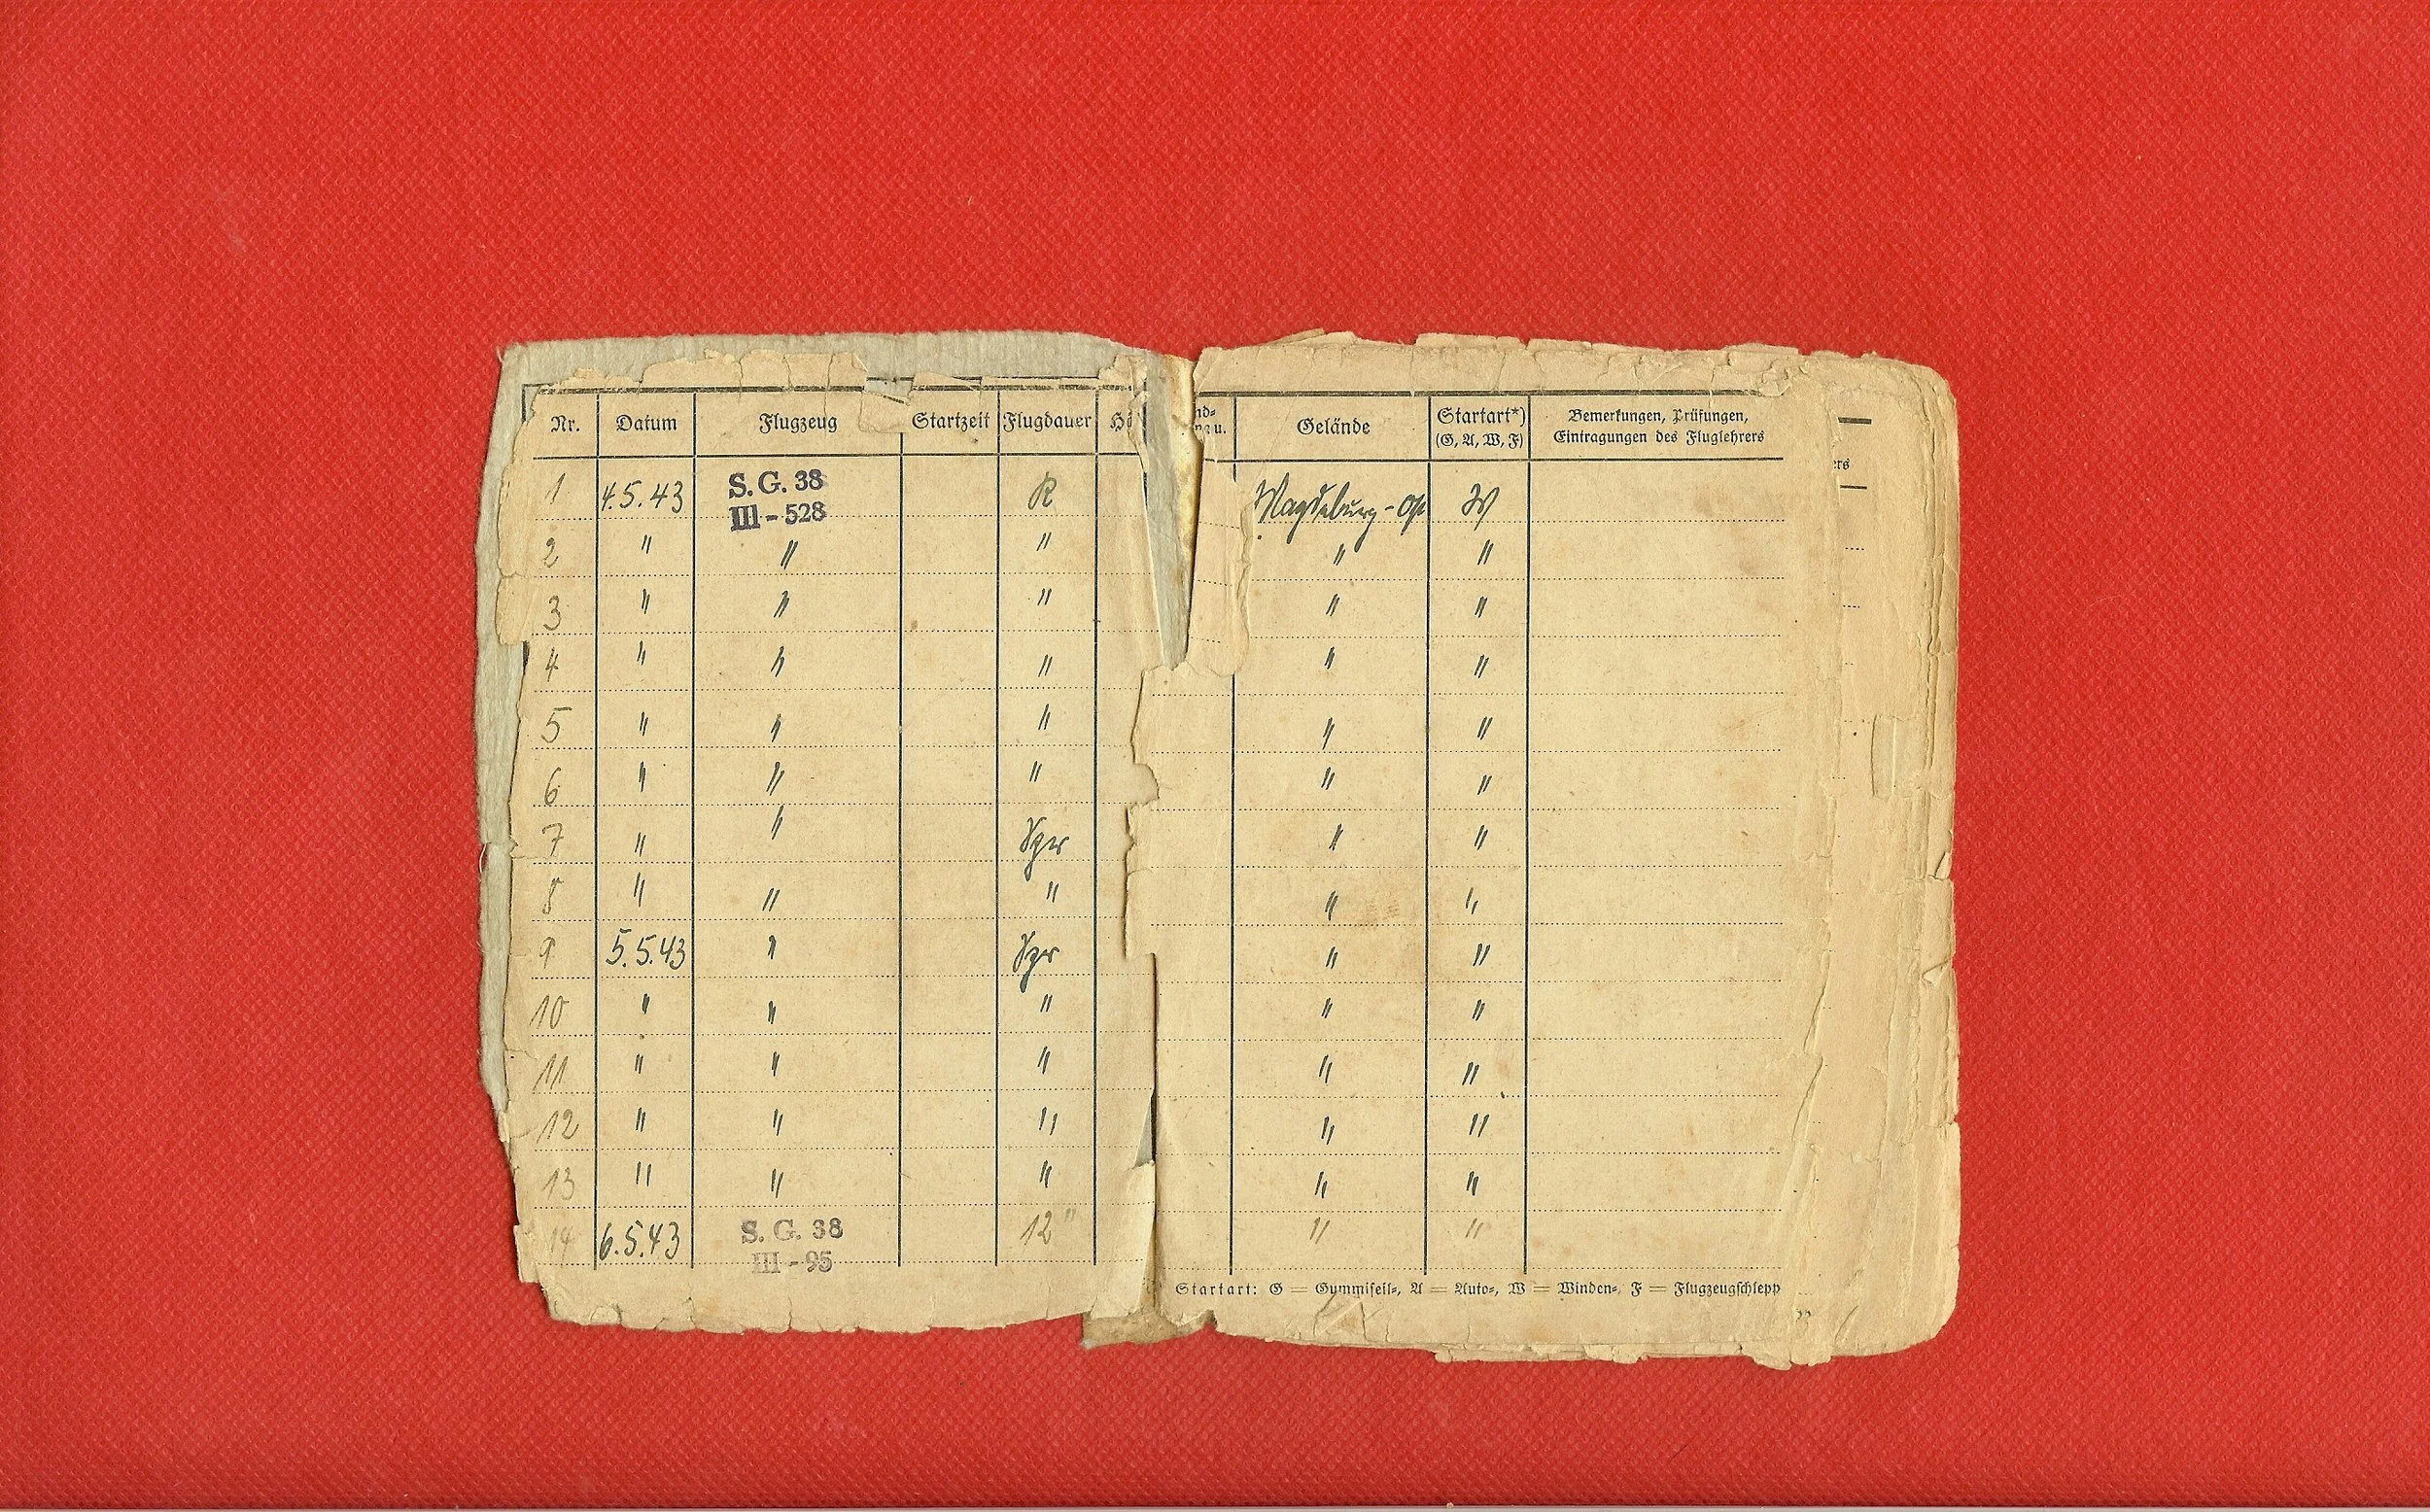 Nr. Datum Flugzeug Startzeit Flugdauer Gelände Startart*) (G, A, W, F) Bemerkungen, Prüfungen, Eintragungen des Fluglehrers
1 4.5.43 S. G. 38 III - 528 R Magdeburg - Ost W
2 " " " " "
3 " " " " "
4 " " " " "
5 " " " " "
6 " " " " "
7 " " Spr " "
8 " " " " "
9 5.5.43 " Spr " "
10 " " " " "
11 " " " " "
12 " " " " "
13 " " " " "
14 6.5.43 S. G. 38 III - 95 12" " "
Startart: G = Gummiseil-, A = Auto-, W = Winden-, F = Flugzeugschlepp